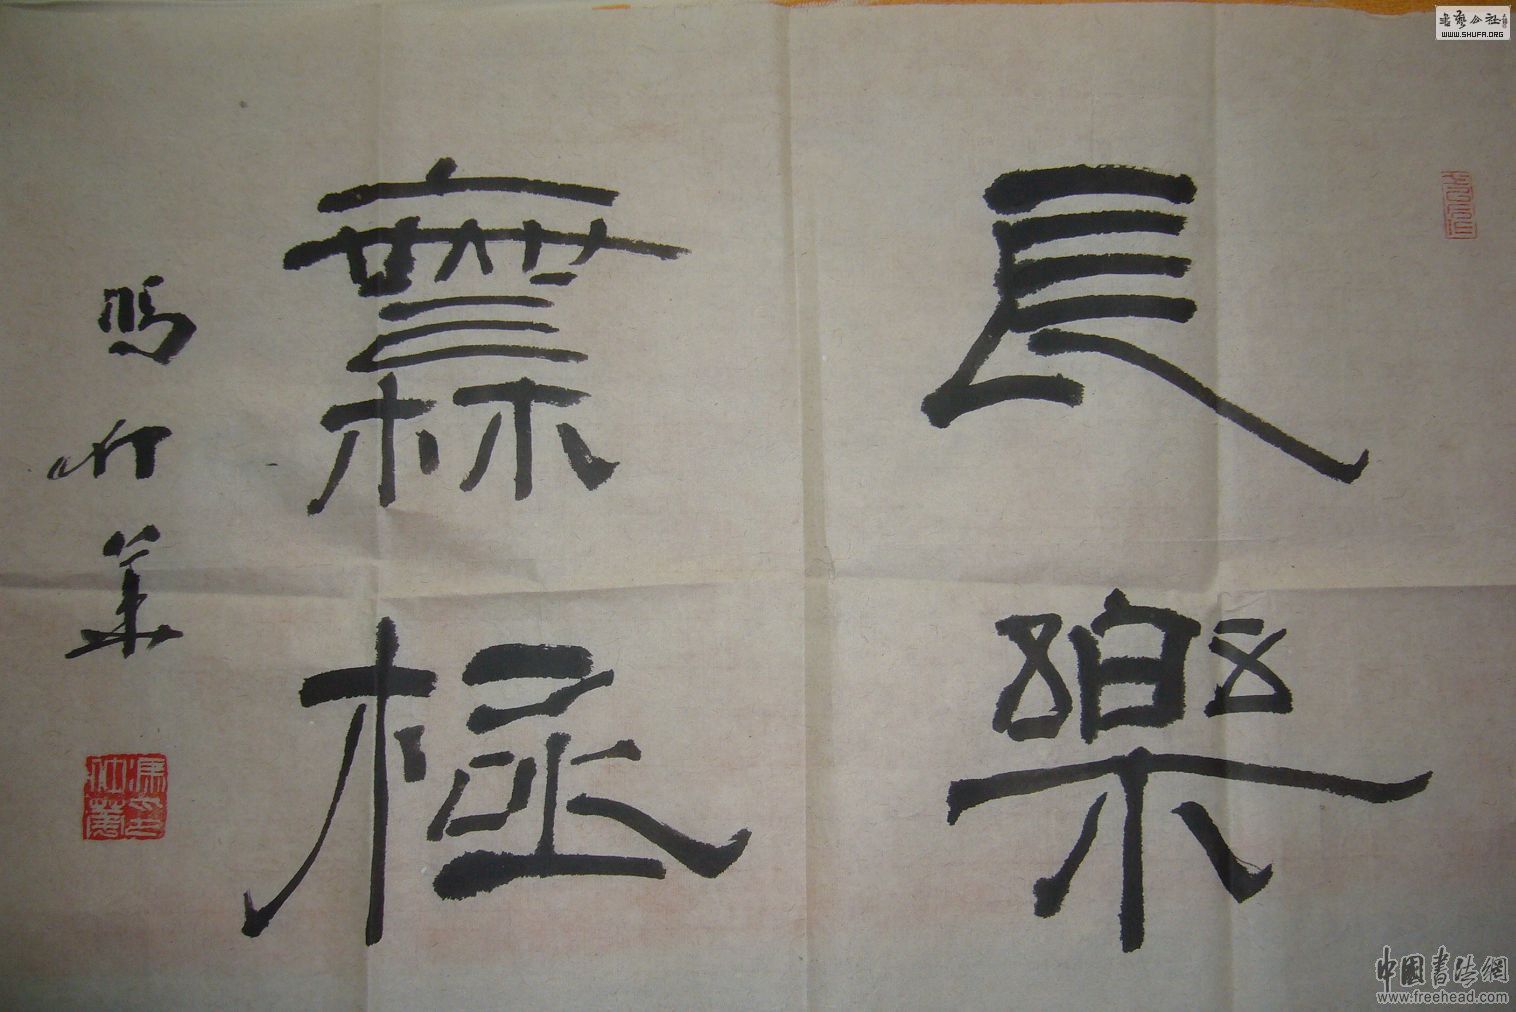 長樂
無極
馮仲華
書藝公社
WWW.SHUFA.ORG
中國書法網
www.freehead.com